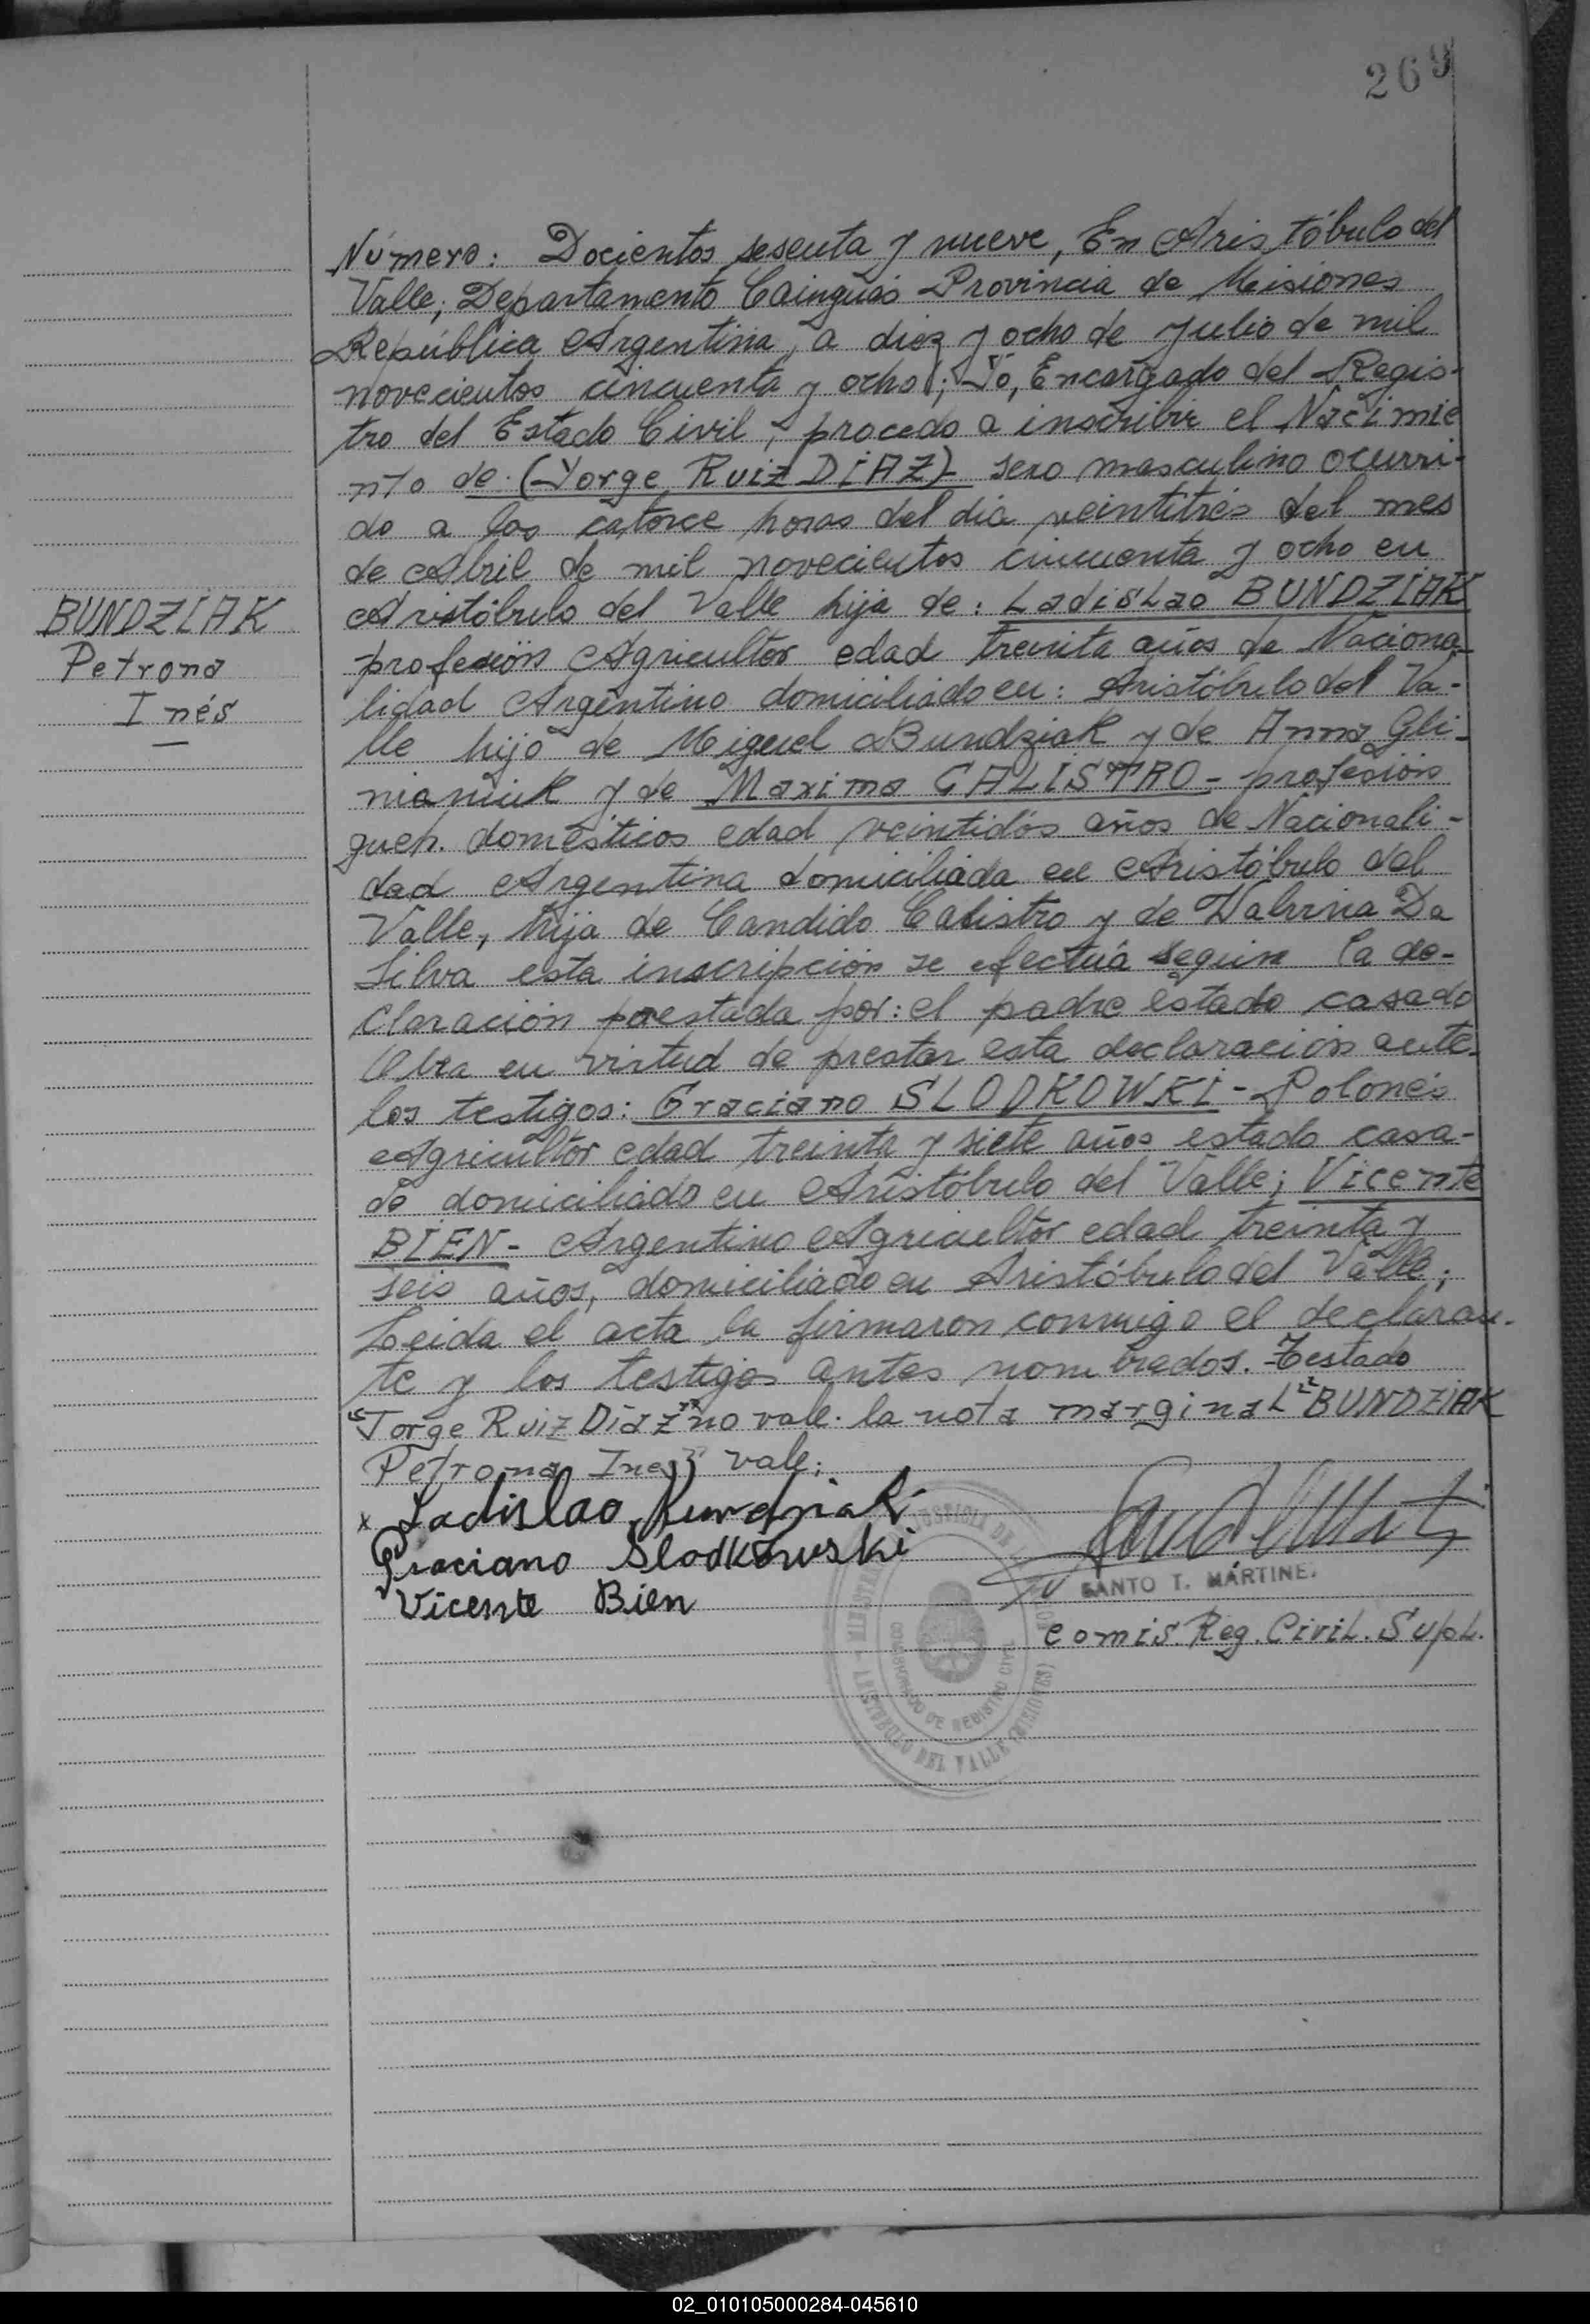 269
Número: Docientos sesenta y nueve, En Aristóbulo del
Valle; Departamento Cainguás Provincia de Misiones
República Argentina, a diez y ocho de Julio de mil
novecientos cincuenta y ocho; Yo, Encargado del Regis-
tro del Estado Civil, procedo a inscribir el Nacimie
nto de (Jorge Ruiz DÍAZ) sexo masculino ocurri-
do a las catorce horas del día veintitrés del mes
de Abril de mil novecientos cincuenta y ocho en
Aristóbulo del Valle hija de: Ladislao BUNDZIAK
BUNDZIAK
Petrona
Inés
profesión Agricultor edad treinta años de Naciona-
lidad Argentino domiciliado en: Aristóbulo del Va-
lle hijo de Miguel Bundziak y de Anna Gli-
nianiuk y de Maxima CALISTRO- profesión
queh. domésticos edad veintidós años de Nacionali-
dad Argentina domiciliada en Aristóbulo del
Valle, hija de Candido Calistro y de Da
Silva esta inscripción se efectúa según la de-
claración prestada por: el padre estado casado
Obra en virtud de prestar esta declaración ante
los testigos: Graciano SLODKOWKI- Polonés
Agricultor edad treinta y siete años estado casa-
do domiciliado en Aristóbulo del Valle; Vicente
BIEN- Argentino Agricultor edad treinta y
seis años, domiciliado en Aristóbulo del Valle;
Leida el acta la firmaron conmigo el declaran-
te y los testigos antes nombrados. Testado
"Jorge Ruiz Díaz" no vale. la nota marginal "BUNDZIAK
Petrona Ines" vale;
x Ladislao Bundziak
Graciano Slodkowski
Vicente Bien
SANTO T. MÁRTINE.
Comis. Reg. Civil. Supl.
COMISIONADO DE REGISTRO CIVIL
ARISTOBULO DEL VALLE (MISIONES)
02_010105000284-045610